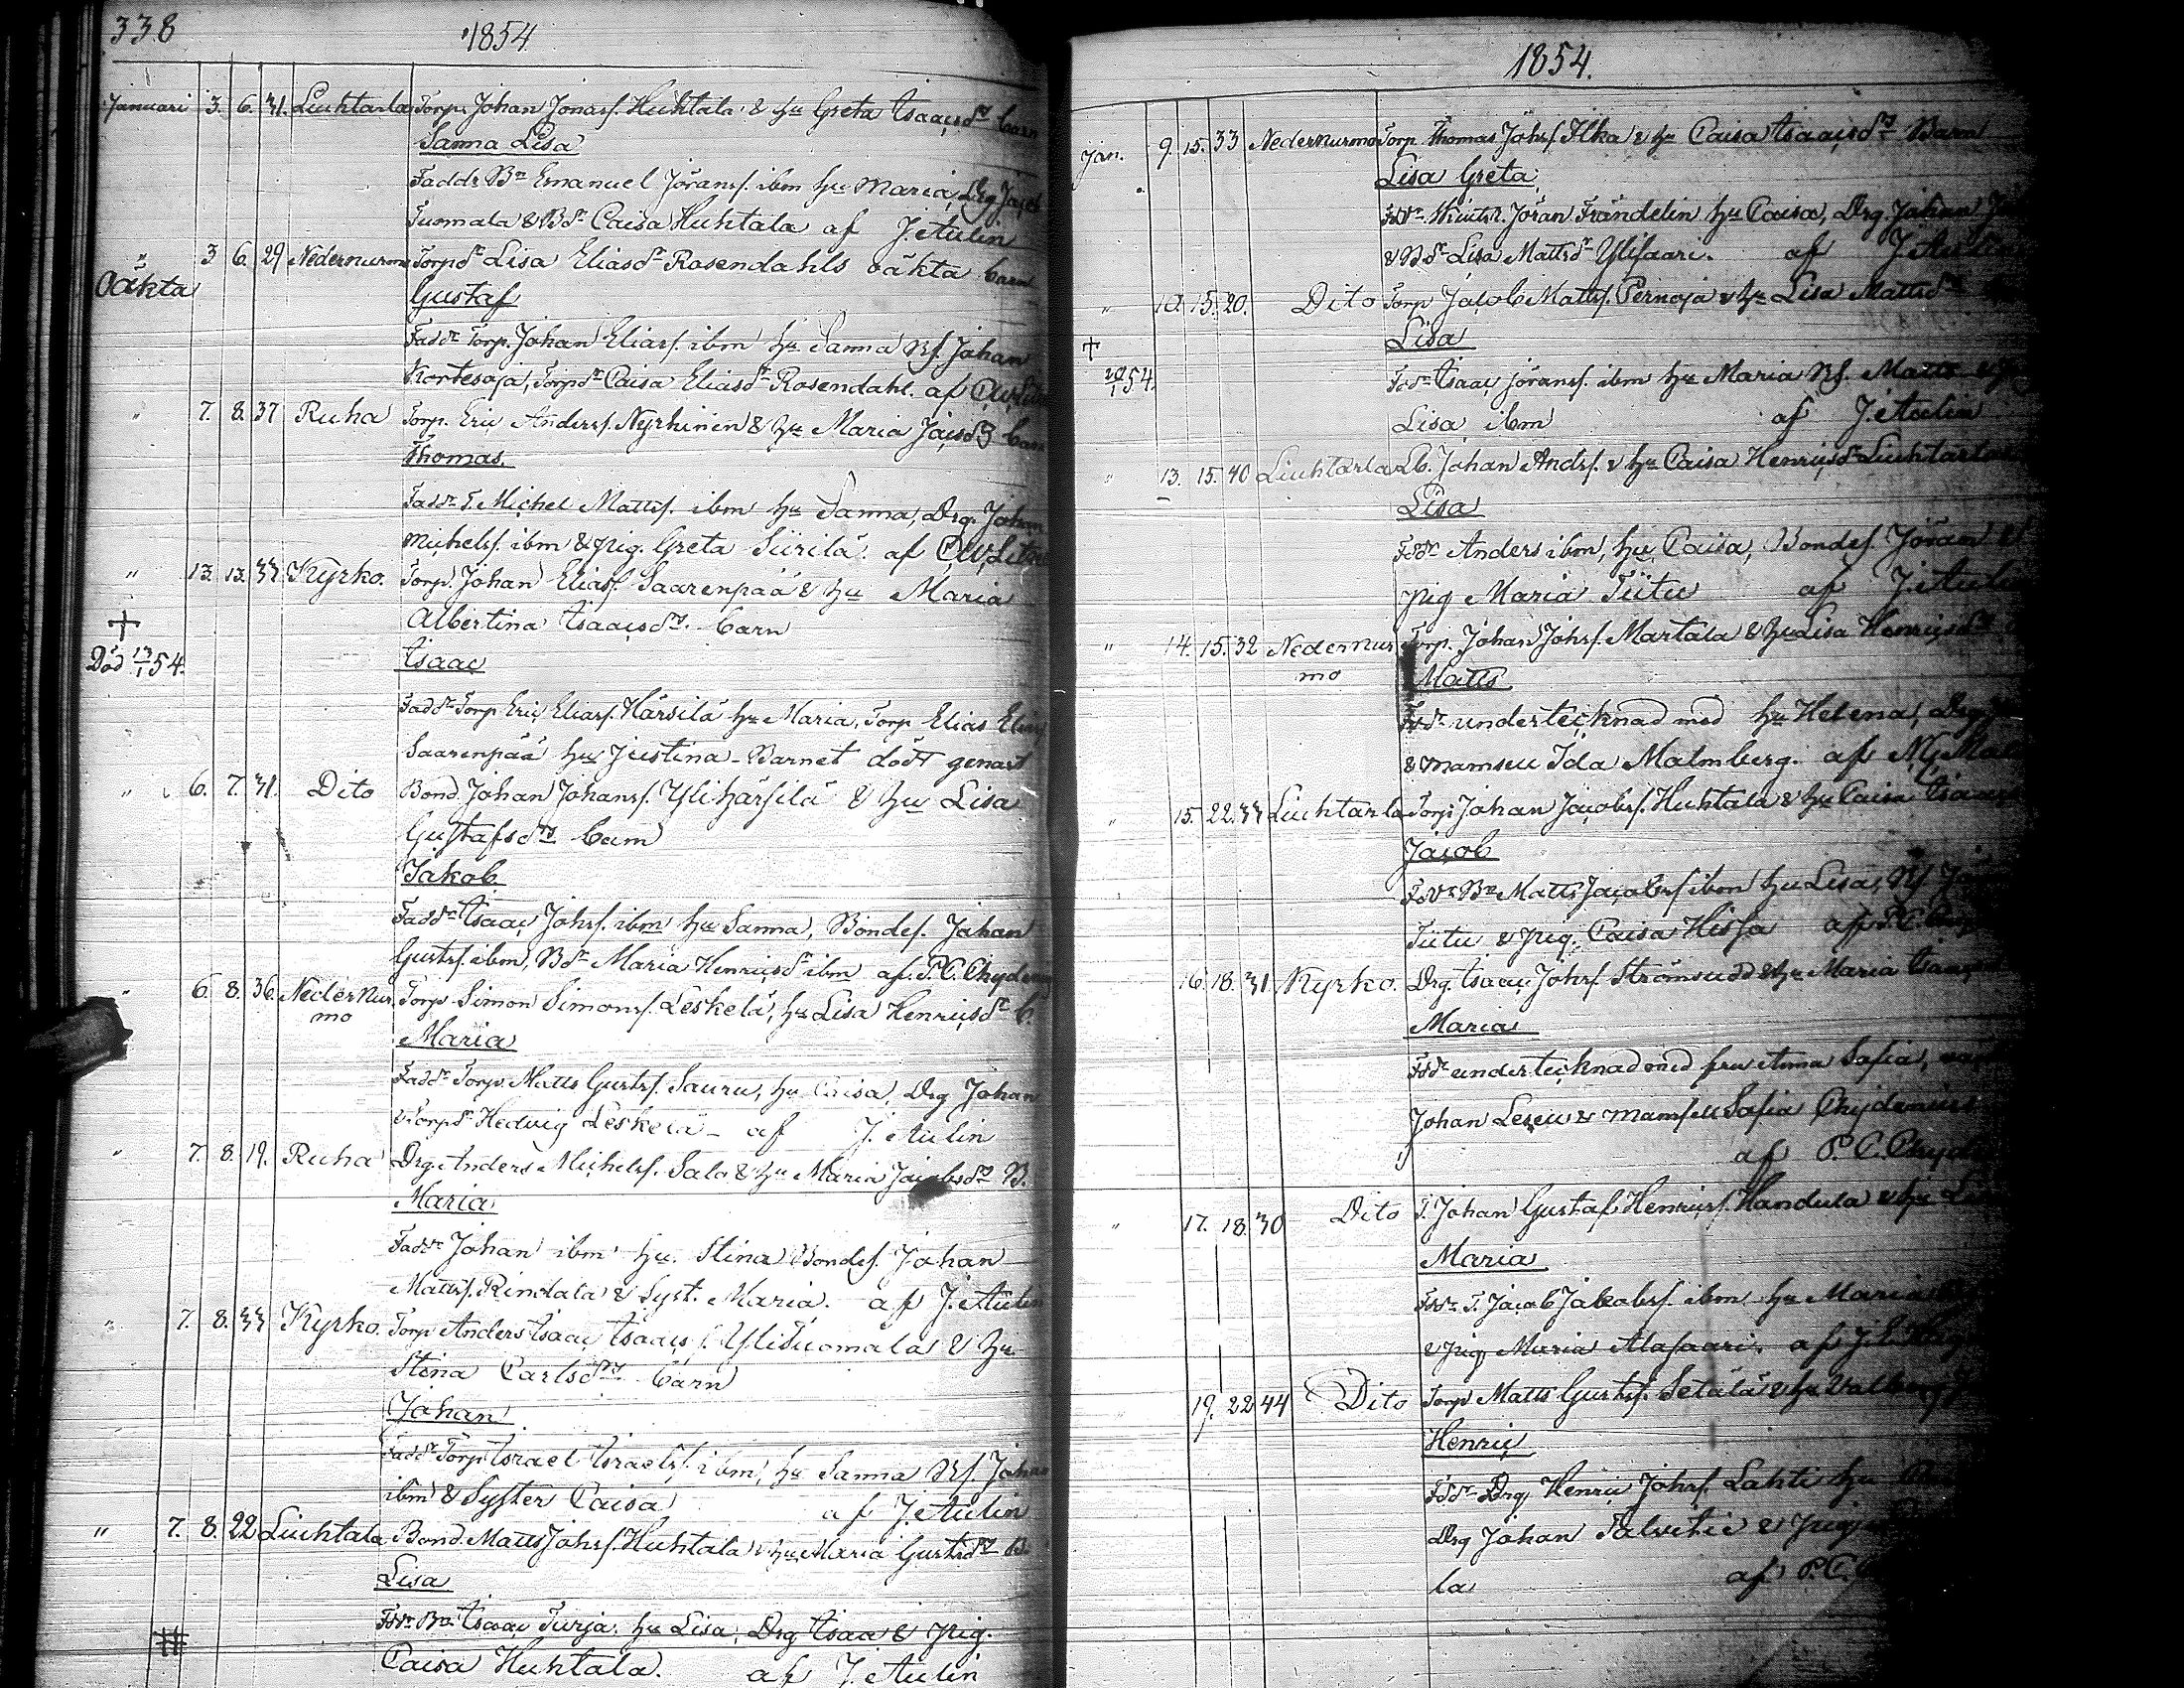 338
1854
Januari 3. 6. 31. Liuhtarla Torp. Johan Jonass. Huhtala & hu Greta Isaacsdr barn
Sanna Lisa
Faddr Bn Emanuel Jöranss. ibm hu Maria, Drg Jacob
Tuomala & Bdr Caisa Huhtala af J. Aulin
" 3 6. 29 Nedernurmo Torpdr Lisa Eliasdr Rosendahls oäkta barn
Oäkta
Gustaf
Faddr Torp. Johan Eliass. ibm hu Sanna Bs. Johan
Kortesoja, Torpdr Caisa Eliasdr Rosendahl. af
" 7. 8. 37 Ruha Torp. Eric Anderss. Nyrhinen & hu Maria Jacsdr barn
Thomas.
Faddr T. Michel Matts. ibm hu Sanna, Drg. Johan
Michelss. ibm & pig. Greta Siirilä. af
" 13. 13. 33 Kyrko. Torp. Johan Eliass. Saarenpää & hu Maria
Albertina Isaacsdr. barn
†
Död 13/1 54.
Isaac
Faddr Torp Eric Eliass. Härsilä hu Maria, Torp Elias Eliass
Saarenpää hu Justina - Barnet dött genast
" 6. 7. 31 Dito Bond. Johan Johanss. Ylihärsilä & hu Lisa
Gustafsdr barn
Jakob
Faddr Isaac Johss. ibm hu Sanna, Bondes. Johan
Gustss. ibm, Bdr Maria Henricsdr ibm af P.C. Chydenius
" 6. 8. 36. Nedernur Torp. Simon Simonss. Leskelä, hu Lisa Henricsdr b.
mo
Maria
Faddr Torp. Matts Gustss. Sauru, hu Caisa, Drg Johan
& Torpdr Hedvig Leskelä - af J. Aulin
" 7. 8. 19. Ruha Drg. Anders Michelss. Sala & hu Maria Jacobsdr B.
Maria
Faddr Johan ibm hu. Stina Bondes. Johan
Matts. Rindala & Syst. Maria. af J. Aulin
" 7. 8. 33 Kyrko. Torp Anders Isaac Isaacs s. Ylituomala & hu
Stina Carlsdr barn
Johan
Faddr Torp Israel Israelss. ibm, hu Sanna Bs. Johan
ibm & Syster Caisa af J. Aulin
" 7. 8. 22 Liuhtala Bond. Matts Johss. Huhtala & hu Maria Gustsdr B.
Lisa
Fddr Bn Isaac Turja. hu Lisa, Drg Isaac & pig.
Caisa Huhtala. af J. Aulin
1854.
Jan. 9. 15. 33 Nedernurmo Torp Thomas Johss. Ilka & hu Caisa Isaacsdr Barn
Lisa Greta
Fddr. Jöran Frändelin hu Caisa, Drg. Johan
& Bdr Lisa Mattsdr Ylisaari. af J. Aulin
" 10. 15. 20. Dito Torp Jacob Mattss. Pernaja & hu Lisa Mattsdr
Lisa
†
20/1 54.
Fddr Isaac Jöranss. ibm hu Maria Bs. Matts &
Lisa ibm af J. Aulin
" 13. 15. 40 Liuhtarla Lb. Johan Andss. & hu Caisa Henricsdr Liuhtarla
Lisa
Fddr Anders ibm, hu Caisa, Bondes. Jöran &
pig Maria Tiitu af J. Aulin
" 14. 15. 32 Nedernur Torp. Johan Johss. Martala & hu Lisa Henricsdr
mo
Matts
Fddr undertecknad med hu Helena, Drg
& Mamsell Ida Malmberg. af N.G. Malmberg
" 15. 22. 33 Liuhtarla Torp Johan Jacobss. Huhtala & hu Caisa Isaacs
Jacob
Fddr Bn Matts Jacobss ibm hu Lisa, Bs
Tiitu & pig. Caisa Hissa af P.C.
16. 18. 31. Kyrko. Drg. Isaac Johss Strömsudd & hu Maria Isaacs
Maria
Fddr undertecknad med fru Anna Sofia,
Johan Leseu & Mamsell Sofia Chydenius
af P. C. Chyd
" 17. 18. 30 Dito T. Johan Gustaf Henricss. Handula & hu
Maria
Fddr T. Jacob Jakobss. ibm hu Maria
& pig Maria Alasaari. af
" 19. 22 44 Dito Torp Matts Gustss. Setälä & hu Valborg
Henric
Fddr Drg Henric Johss. Lahti hu
Drg Johan Talvitie & pig
la af P.C.